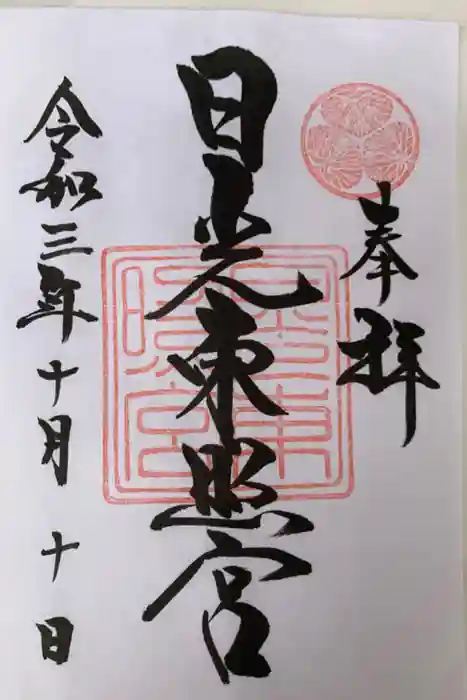 奉拝
日光東照宮
令和三年十月十日